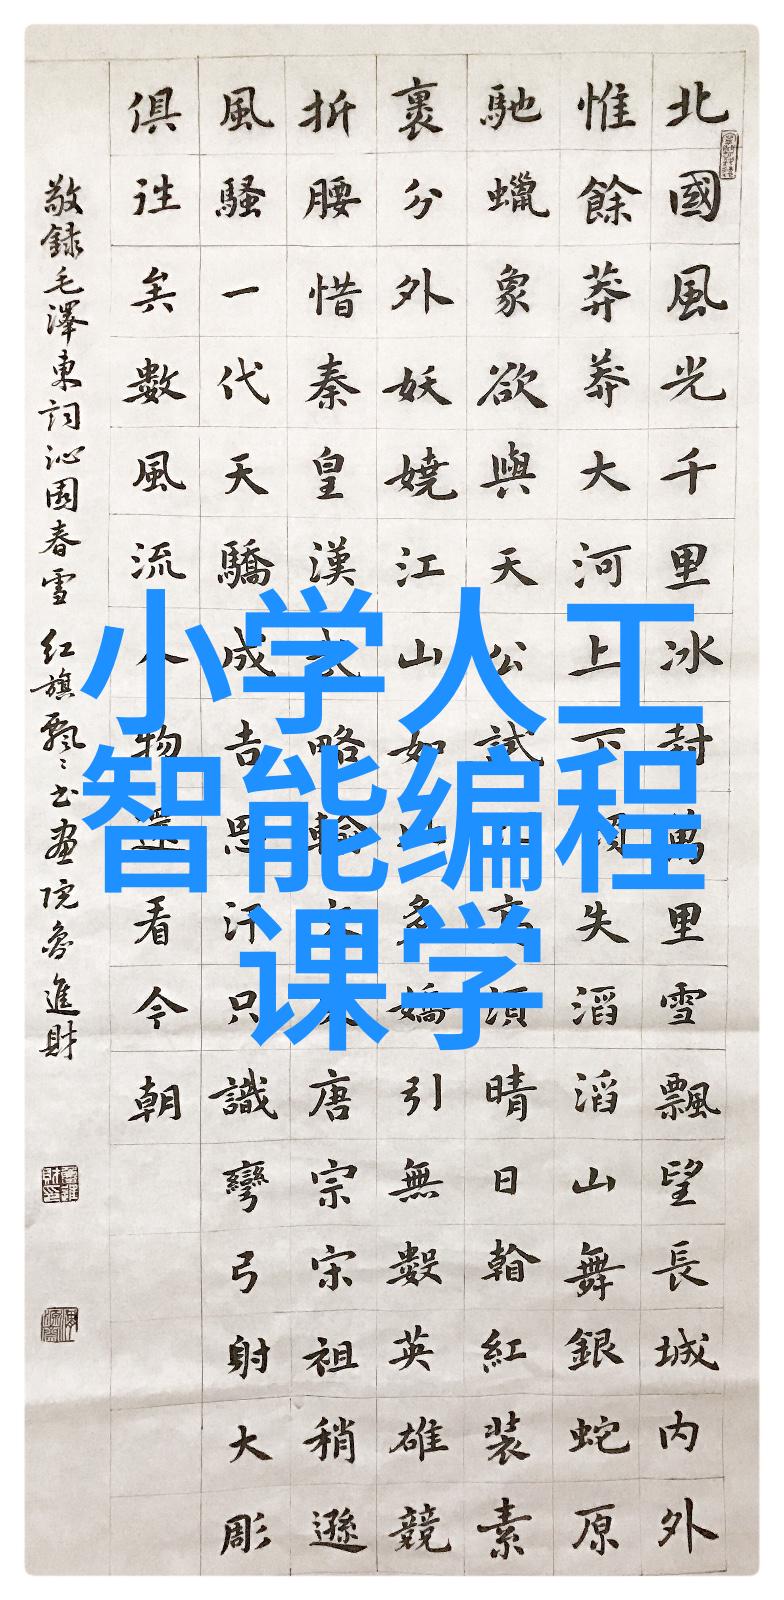 小学人工
智能编程
课学
北國風光千里冰封萬里雪飄望長城内外
惟餘莽莽大河上下頓失滔滔山舞銀蛇原
馳蠟象欲與天公試比高須晴日翰紅装素
裹分外妖嬈江山如此多嬌引無數英雄競
折腰惜秦皇漢武略輸文采唐宗宋祖稍遜
風騷一代天驕成吉思汗只識彎弓射大彫
俱往矣數風流人物還看今朝
敬録毛澤東詞沁園春雪 红旗飄〻书画院魯進財